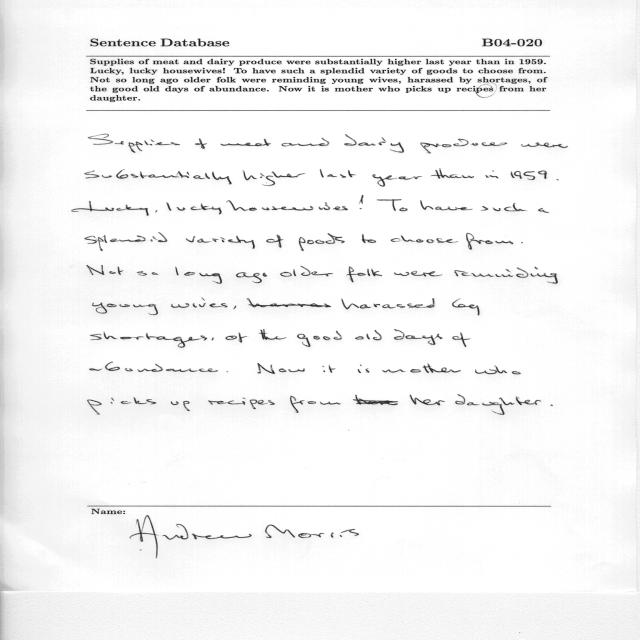 Sentence Database B04-020
Supplies of meat and dairy produce were substantially higher last year than in 1959.
Lucky, lucky housewives! To have such a splendid variety of goods to choose from.
Not so long ago older folk were reminding young wives, harassed by shortages, of
the good old days of abundance. Now it is mother who picks up recipes from her
daughter.
Supplies of meat and dairy produce were
substantially higher last year than in 1959.
Lucky, lucky housewives! To have such a
splendid variety of goods to choose from.
Not so long ago older folk were reminding
young wives, harassed by
shortages, of the good old days of
abundance. Now it is mother who
picks up recipes from her daughter.
Name:
Andrew Morris